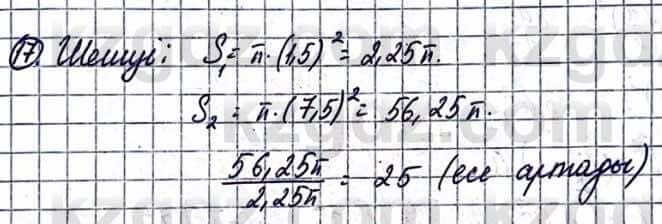 17. Шешуі: S₁ = π·(1,5)² = 2,25π.
S₂ = π·(7,5)² = 56,25π.
56,25π / 2,25π = 25 (есе артады)